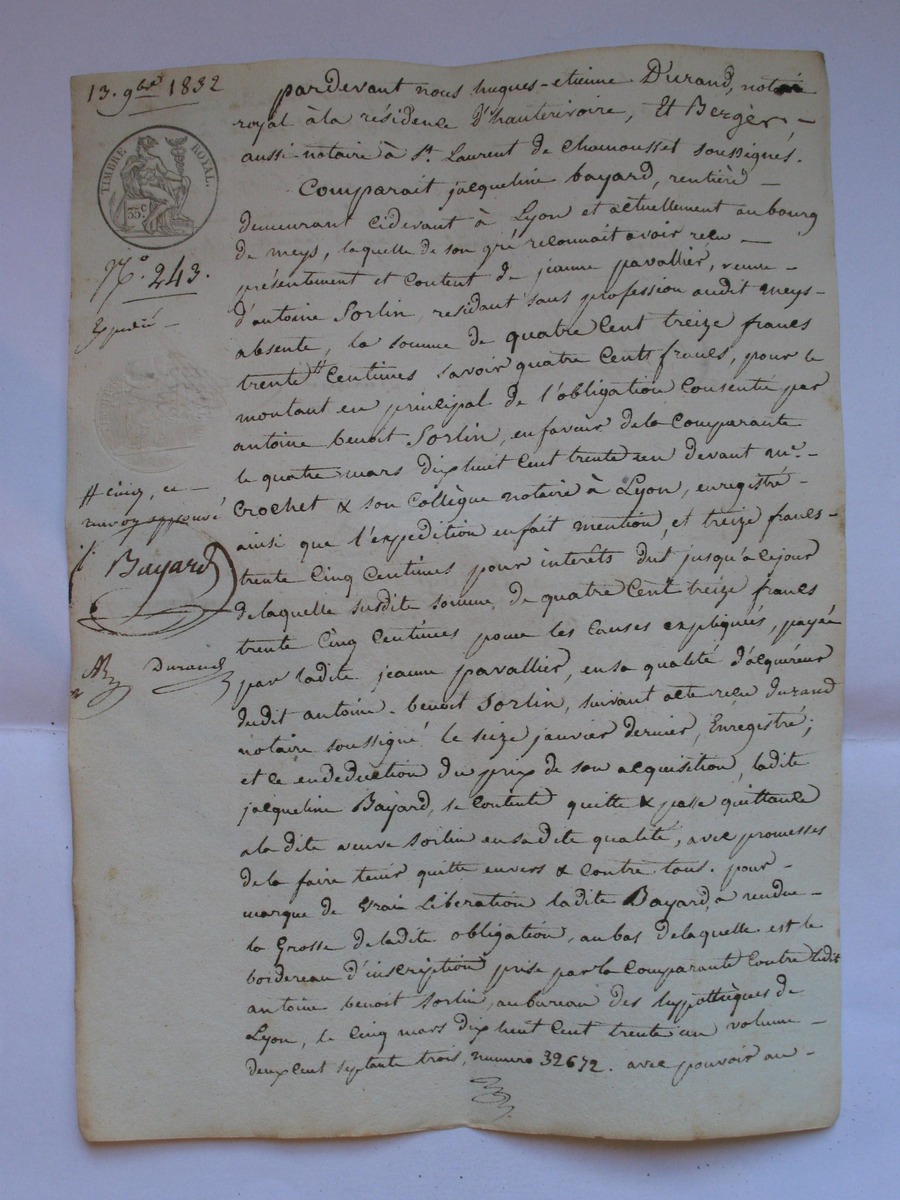 13. 9bre 1832
TIMBRE ROYAL.
35.C
N.o 243.
Expédié
# cinq, ce
renvoy approuvé
Bayard
Durand
pardevant nous hugues-etienne Durand, notaire
royal à la résidence d'hauterivoire, Et Berger,
aussi notaire à St. Laurent de Chamousset soussignés.
Comparait jacqueline bayard, rentière
demeurant cidevant à Lyon et actuellement au bourg
de meys, laquelle de son gré reconnait avoir recu
présentement et content de jeanne pavallier, veuve
d'antoine Sorlin, residant sans profession audit meys
absente, la somme de quatre Cent treize francs
trente # Centimes savoir quatre Cents francs, pour le
montant en principal de l'obligation Consentie par
antoine benoit Sorlin, en faveur de la Comparante
le quatre mars dix huit Cent trente un devant me.
Crochet & son Collègue notaire à Lyon, enregistré
ainsi que l'expedition en fait mention, et treize francs
trente Cinq Centimes pour interêts dus jusqu'à ce jour
de laquelle susdite somme de quatre Cent treize francs
trente Cinq Centimes pour les Causes expliquées, payée
par ladite jeanne pavallier, en sa qualité d'acquéreur
dudit antoine-benoit Sorlin, suivant acte recu durand
notaire soussigné le seize janvier dernier, Enregistré;
et ce en deduction du prix de son acquisition, ladite
jacqueline Bayard, se contente quitte & passe quittance
a la dite veuve Sorlin en sa dite qualité, avec promesses
de la faire tenir quitte envers & contre tous. pour
marque de vraie Libération ladite Bayard, a rendue
la Grosse de ladite obligation, au bas de laquelle est le
bordereau d'inscription prise par la Comparante Contre ledit
antoine benoit Sorlin, au bureau des hypothèques de
Lyon, le Cinq mars dix huit Cent trente un volume
deux Cent septante trois, numero 32672. avec pouvoir au